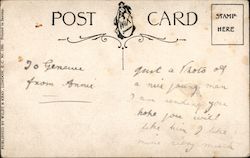 POST CARD
STAMP
HERE
To Genevie
from Annie
Just a Photo of
a nice young man
I am sending you
hope you will
like him I like
mine very much